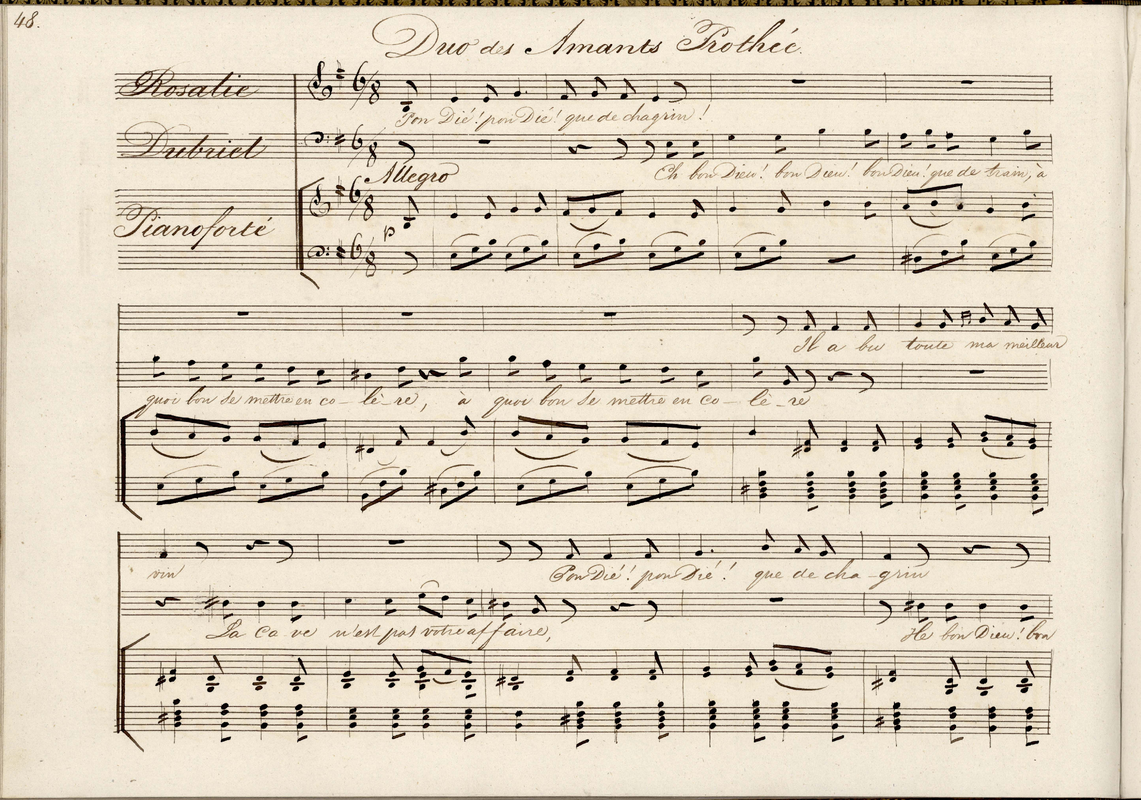 48.
Duo des Amants Prothée.
Rosalie
Pon Dié! pon Dié! que de chagrin!
Dubriel
Eh bon Dieu! bon Dieu! bon Dieu! que de train, à
Allegro
Pianoforté
p
Il a bu toute ma meilleur
quoi bon se mettre en co-lè-re, à quoi bon se mettre en co-lè-re
vin
Pon Dié! pon Dié! que de cha-grin
La ca ve n'est pas votre affaire,
He bon Dieu! bon